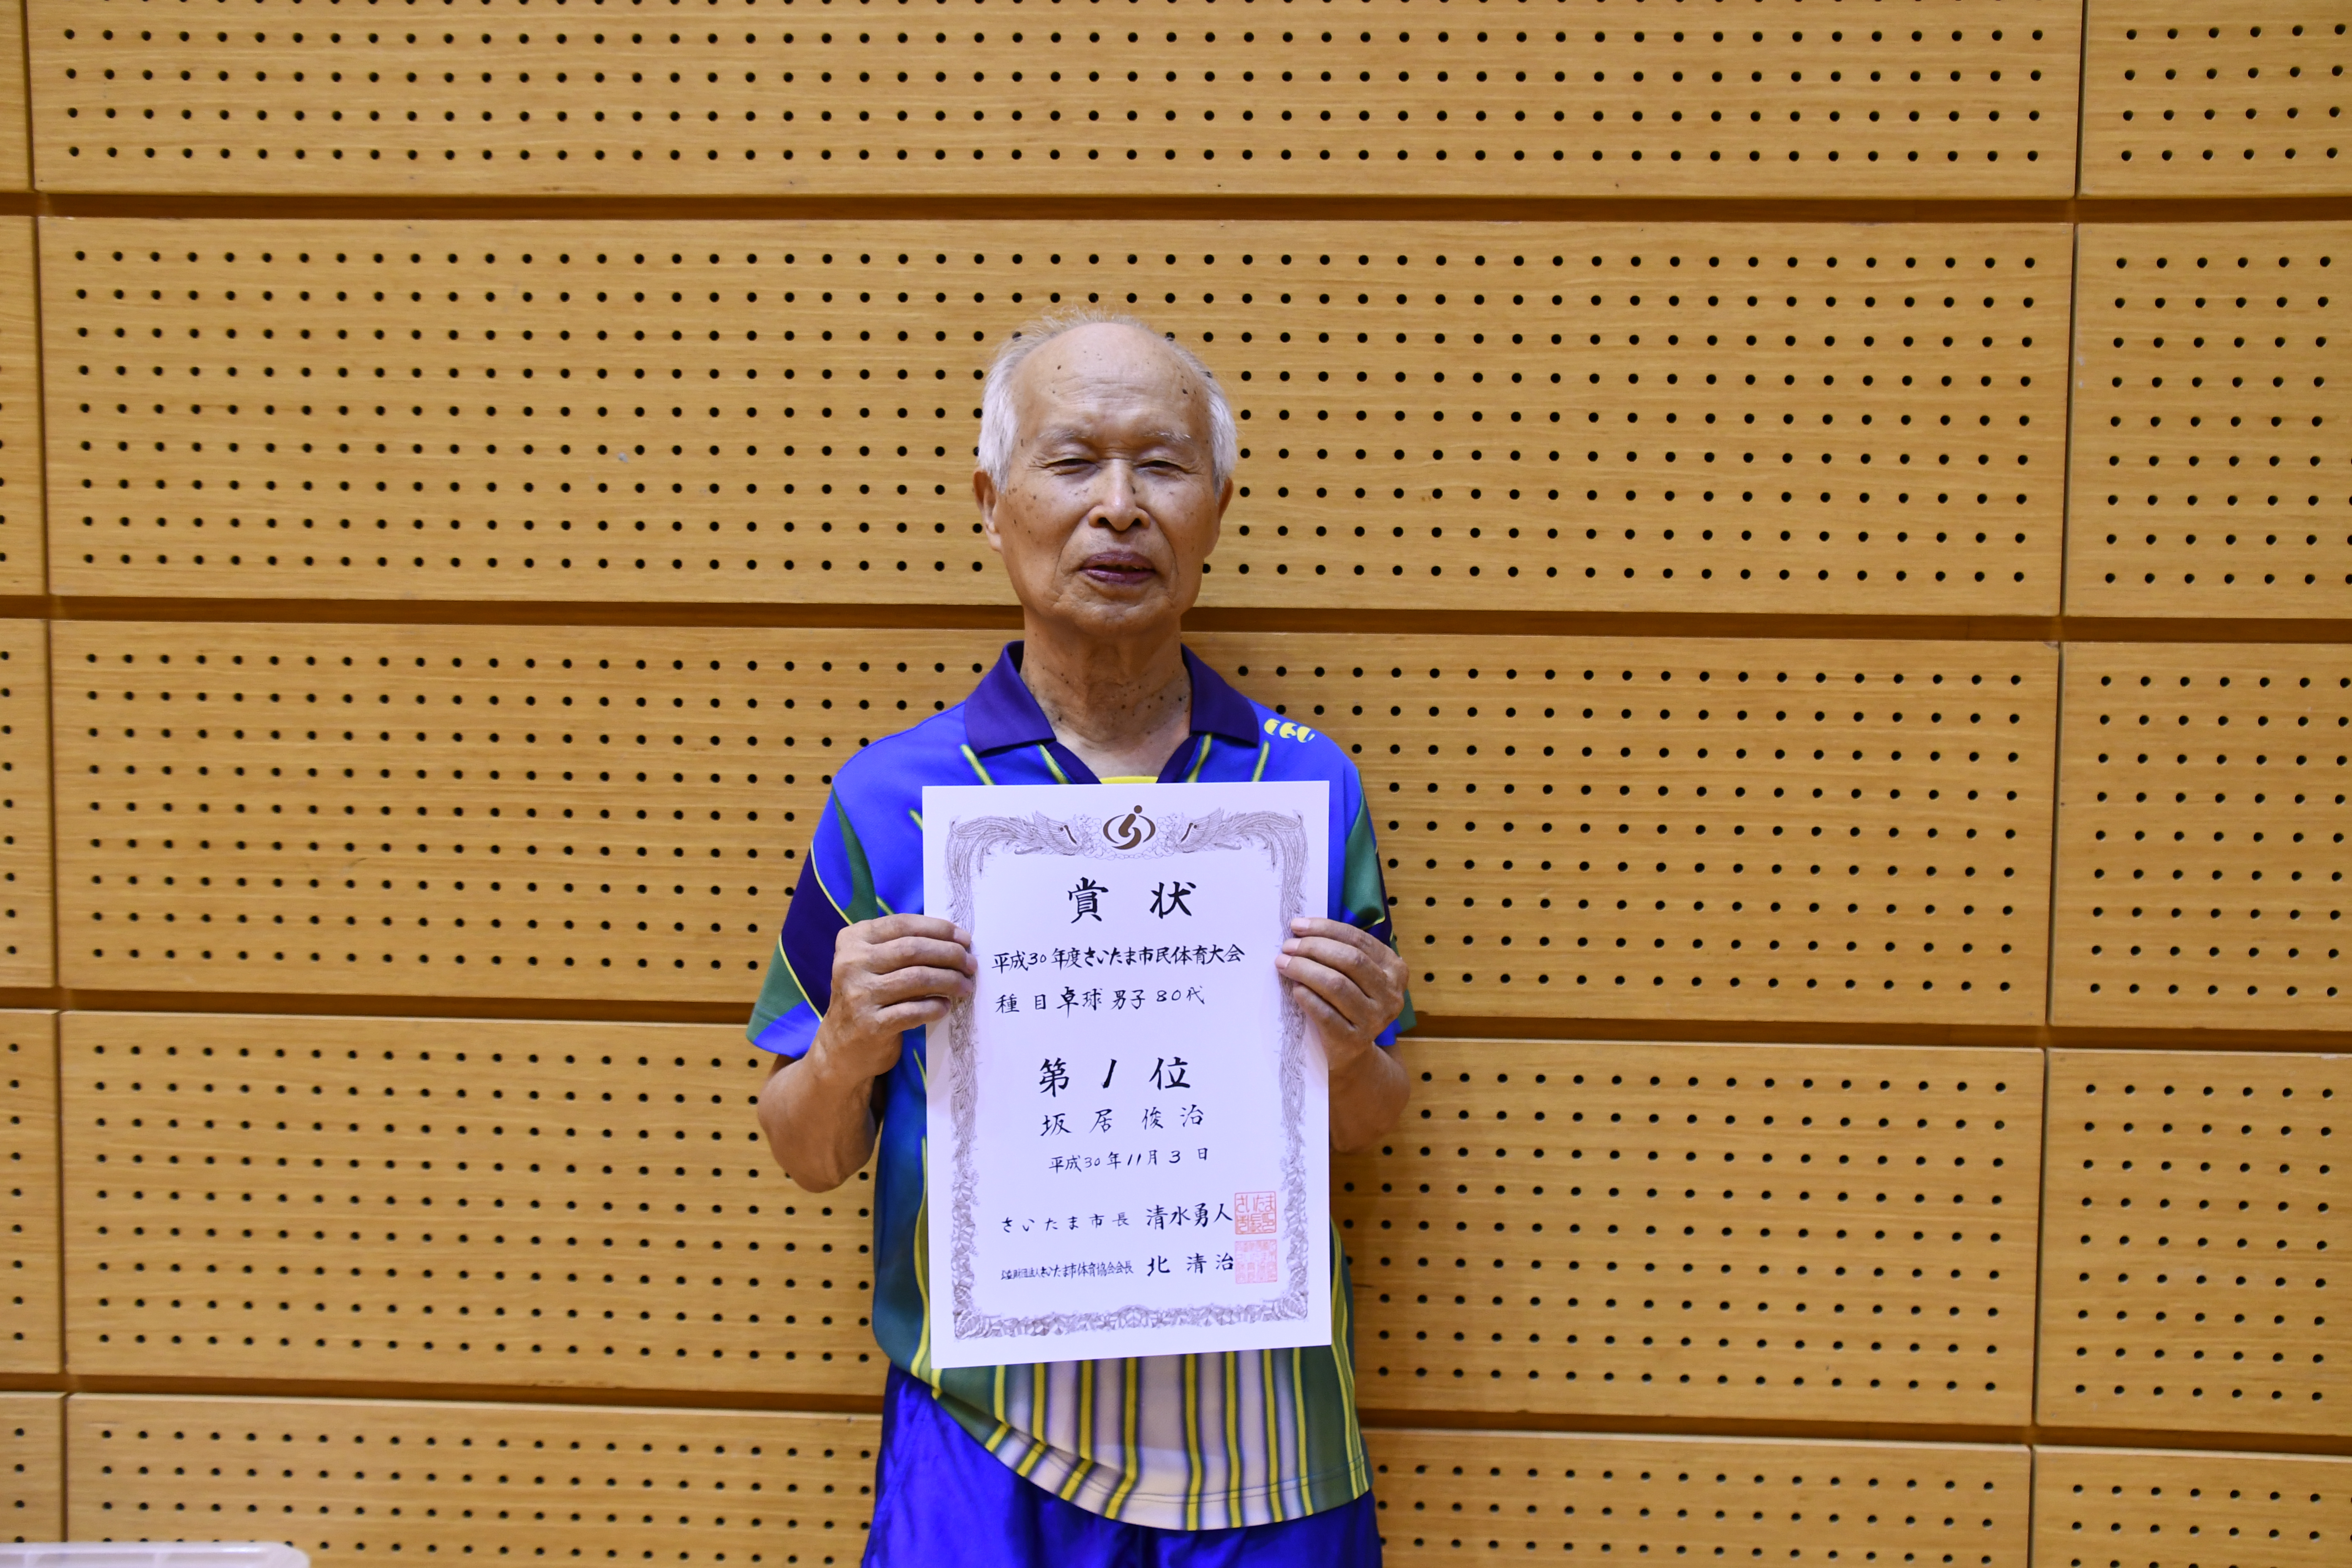 賞状
平成30年度さいたま市民体育大会
種目 卓球 男子 80代
第1位
坂居 俊治
平成30年11月3日
さいたま市長 清水勇人
公益財団法人さいたま市体育協会会長 北 清治